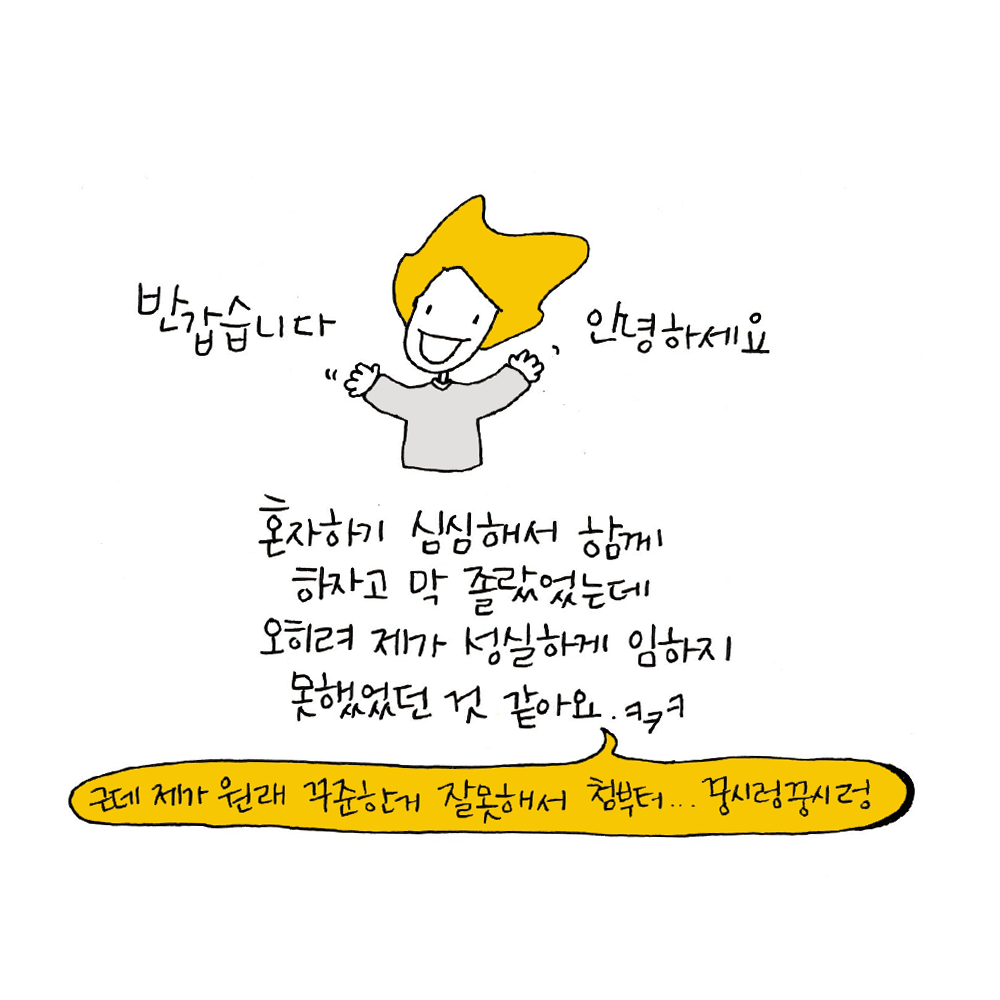 반갑습니다
안녕하세요
혼자하기 심심해서 함께
하자고 막 졸랐었는데
오히려 제가 성실하게 임하지
못했었던 것 같아요. ㅋㅋㅋ
근데 제가 원래 꾸준한거 잘못해서 첨부터... 꿍시렁꿍시렁